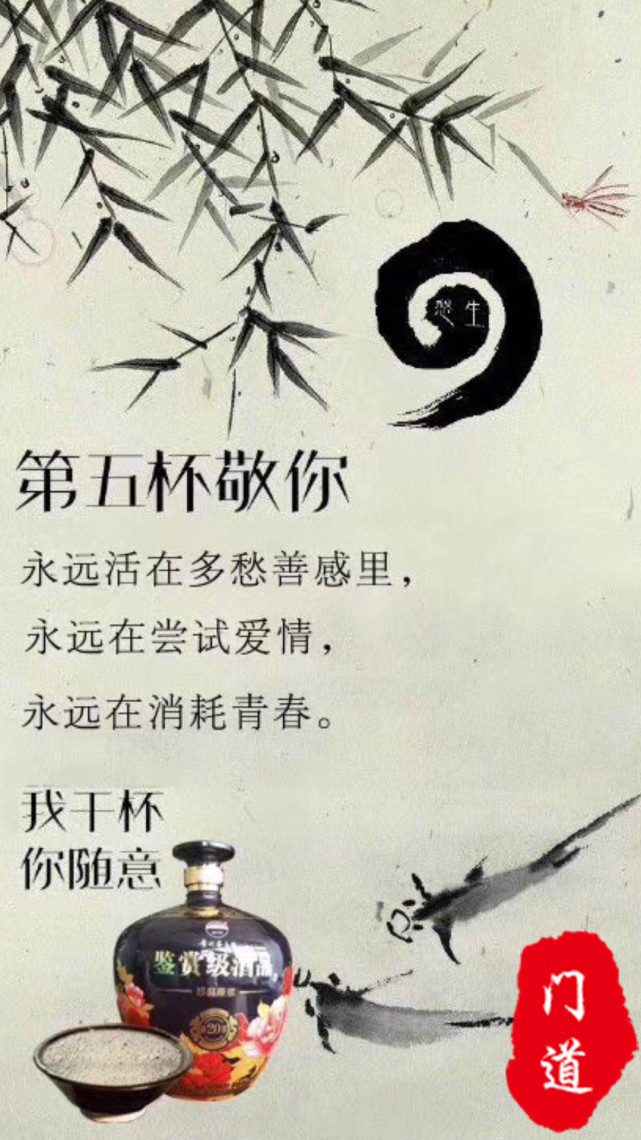 悠生
第五杯敬你
永远活在多愁善感里，
永远在尝试爱情，
永远在消耗青春。
我干杯
你随意
鉴赏级酒品
珍品原浆
20
门
道